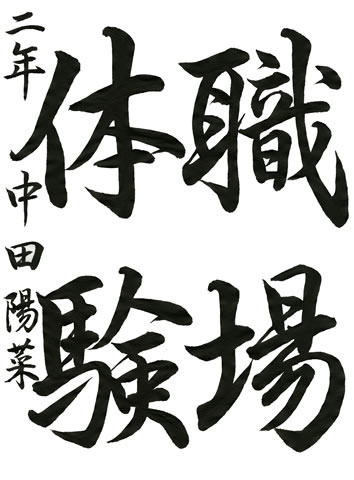 職場
体験
二年 中田陽菜